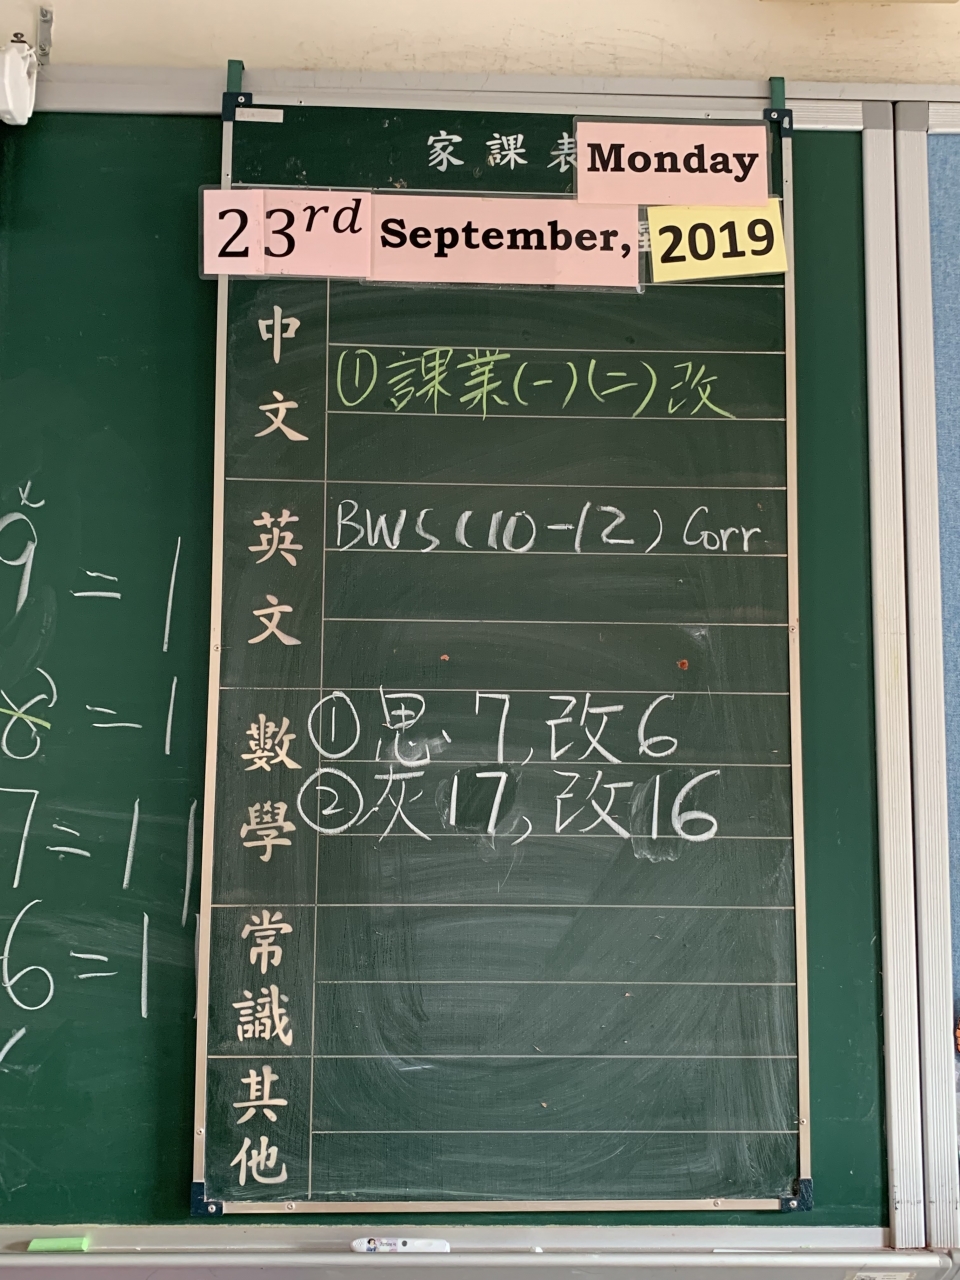 家課表 Monday
23rd September, 2019
中文
①課業(一)(二)改
英文
BWS(10-12) Corr
數學
①思7,改6
②灰17,改16
常識
其他
9 = 1
8 = 1
7 = 11
6 = 1